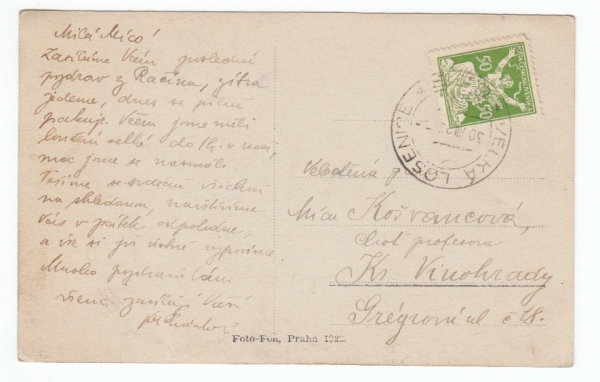 Milá Mico!
Zasíláme Vám poslední
pozdrav z Račína, zítra
jedeme, dnes se pilně
pakuje. Včera jsme měli
loučení
moc jsme se nasmáli.
Těšíme se srdečně všichni
na shledanou, navštívíme
Vás v pátek odpoledne,
a vše si již ústně
Mnoho pozdravů Vám
všem zasílají Vaši
VELKÁ LOSENICE
50 50
Velectěná
Mica Košvancová,
choť profesora
Kr. Vinohrady
Grégrova ul č 18.
Foto-Fon, Praha 192